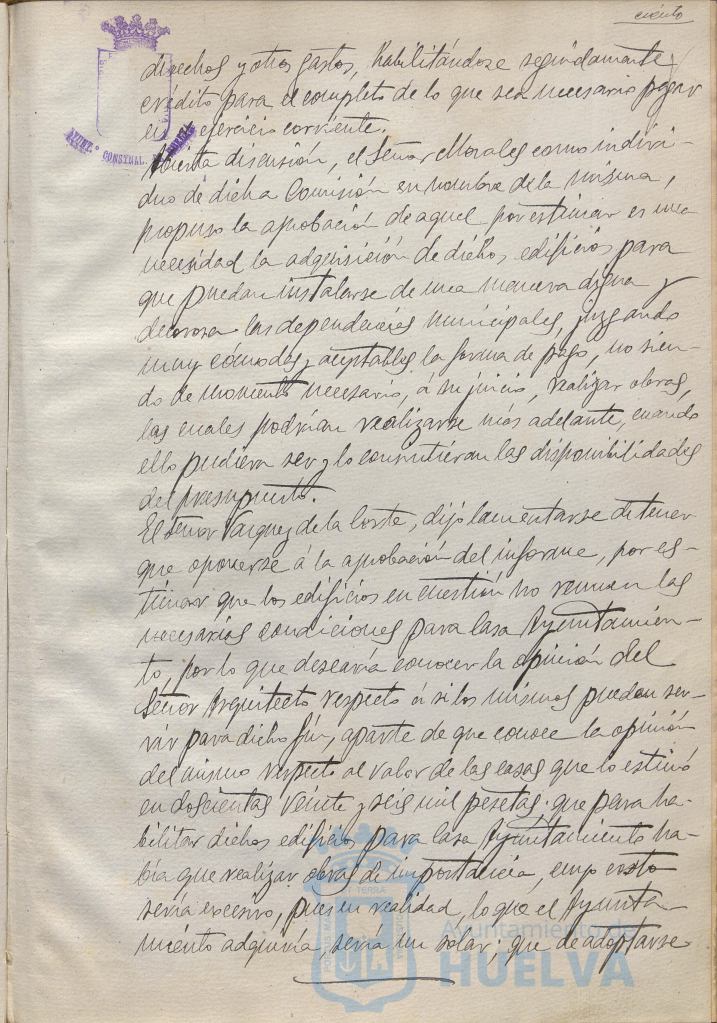 ciento
derechos y otros gastos, habilitándose seguidamente
crédito para el completo de lo que sea necesario pagar
en ejercicio corriente.
Abierta discusión, el Señor Morales como indivi-
duo de dicha Comisión en nombre de la misma,
propuso la aprobación de aquel por estimar es una
necesidad la adquisición de dichos edificios para
que puedan instalarse de una manera digna y
decorosa las dependencias municipales, juzgando
muy cómodas y aceptables la forma de pago, no sien-
do de momento necesario, á su juicio, realizar obras,
las cuales podrían realizarse más adelante, cuando
ello pudiera ser y lo consintieran las disponibilidades
del presupuesto.
El Señor Vazquez de la Corte, dijo lamentarse de tener
que oponerse á la aprobación del informe, por es-
timar que los edificios en cuestión no reunen las
necesarias condiciones para Casa Ayuntamien-
to, por lo que desearía conocer la opinión del
Señor Arquitecto respecto á si los mismos puedan ser-
vir para dicho fín, aparte de que conoce la opinión
del mismo respecto al valor de las casas que lo estimó
en doscientas veinte y seis mil pesetas; que para ha-
bilitar dichos edificios para Casa Ayuntamiento ha-
bía que realizar obras de importancia, cuyo costo
sería excesivo, pues en realidad, lo que el Ayunta-
miento adquiría, sería un solar; que de adoptarse
AYUNT.º CONSTNAL.
Ayuntamiento de
HUELVA